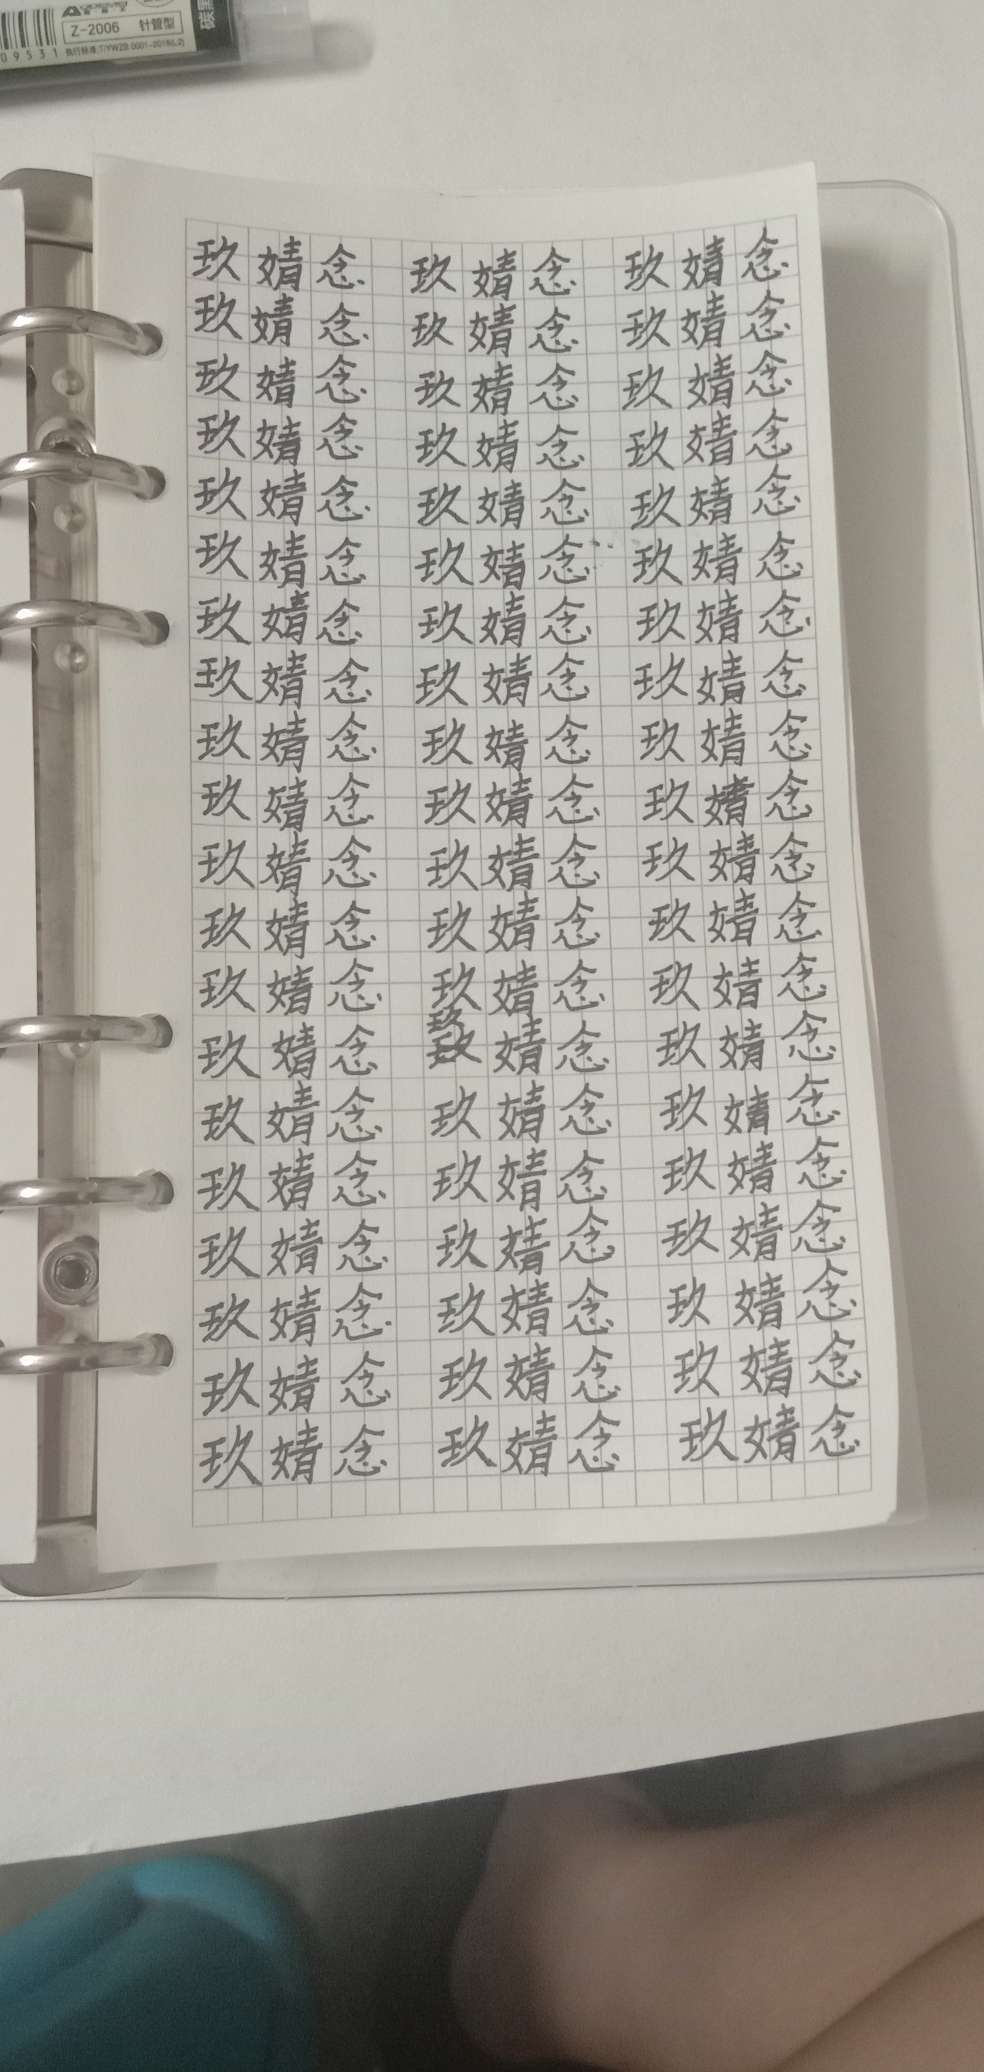 Z-2006 针管型
09531 执行标准:T/YWZB 0001-2018(L2)
玖婧念 玖婧念 玖婧念
玖婧念 玖婧念 玖婧念
玖婧念 玖婧念 玖婧念
玖婧念 玖婧念 玖婧念
玖婧念 玖婧念 玖婧念
玖婧念 玖婧念 玖婧念
玖婧念 玖婧念 玖婧念
玖婧念 玖婧念 玖婧念
玖婧念 玖婧念 玖婧念
玖婧念 玖婧念 玖婧念
玖婧念 玖婧念 玖婧念
玖婧念 玖婧念 玖婧念
玖婧念 玖婧念 玖婧念
玖婧念 玖婧念 玖婧念
玖婧念 玖婧念 玖婧念
玖婧念 玖婧念 玖婧念
玖婧念 玖婧念 玖婧念
玖婧念 玖婧念 玖婧念
玖婧念 玖婧念 玖婧念
玖婧念 玖婧念 玖婧念